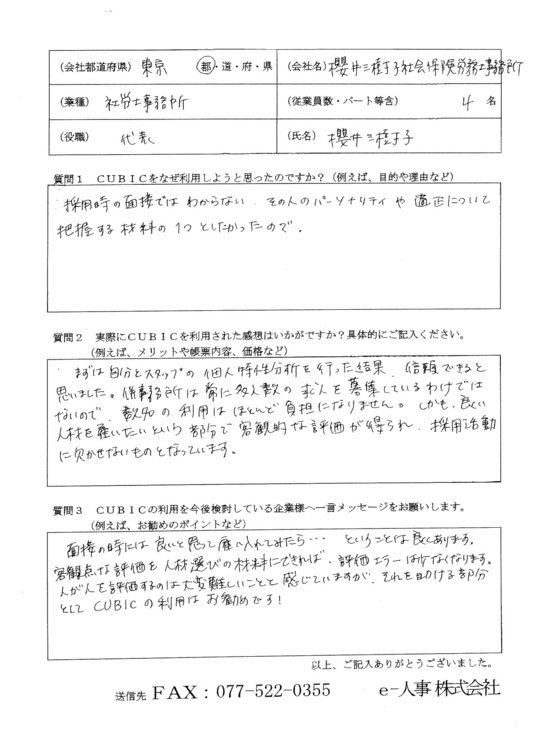 (会社都道府県) 東京 都・道・府・県 (会社名) 櫻井三樹子社会保険労務士事務所
(業種) 社労士事務所 (従業員数・パート等含) 4 名
(役職) 代表 (氏名) 櫻井三樹子
質問1 CUBICをなぜ利用しようと思ったのですか？(例えば、目的や理由など)
採用時の面接ではわからない、その人のパーソナリティや適正について
把握する材料の1つとしたかったので。
質問2 実際にCUBICを利用された感想はいかがですか？具体的にご記入ください。
(例えば、メリットや帳票内容、価格など)
まずは自分とスタッフの個人特性分析を行った結果、信頼できると
思いました。併事務所は常に多人数の求人を募集しているわけでは
ないので、数名の利用はほとんど負担になりません。しかも、良い
人材を雇いたいという部分で客観的な評価が得られ、採用活動
に欠かせないものとなっています。
質問3 CUBICの利用を今後検討している企業様へ一言メッセージをお願いします。
(例えば、お勧めのポイントなど)
面接の時には良いと思って雇い入れてみたら・・・ ということは良くあります。
客観点な評価を人材選びの材料にできれば、評価エラーは少なくなります。
人が人を評価するのは大変難しいことと感じていますが、それを助ける部分
として CUBICの利用はお勧めです！
以上、ご記入ありがとうございました。
送信先 FAX：077-522-0355 e-人事株式会社